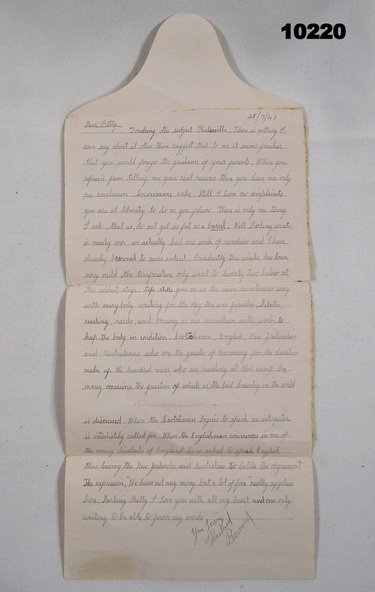 10220
28/7/43
Dear Betty
Touching the subject Huckerville. There is nothing I
can say about it other than suggest that to me it seems peculiar
that you should forego the guidance of your parents. When you
refrain from telling me your real reasons then you leave me only
one conclusion. Convenience sake. Still I have no complaints
you are at liberty to do as you please. There is only one thing
I ask, that is, do not get as fat as a barrel. Well Darling winter
is nearly over, we actually had one week of sunshine and I have
already browned to some extent. Incidently this winter has been
very mild the temperature only went to twenty two below at
the coldest stage. Life still goes on in the same monotonous way
with everybody waiting for the day the war finishes. Debates,
reading, cards, and boxing is our recreation with work to
keep the body in condition. Scotchmen, English, New Zealanders
and Australians who are the guests of Germany for the duration
make up the hundred men who are residing at this camp. On
many occasions the question of which is the best country in the world
is discussed. When the Scotchman begins to speak an interpreter
is immediately called for. When the Englishman commences in one of
the many dialects of England he is asked to speak English
thus leaving the New Zealander and Australian to battle the argument.
The expression, "We have not any money but a lot of fun" really applies
here. Darling Betty I love you with all my heart and am only
waiting to be able to prove my words.
Your Loving
Husband
Bernard